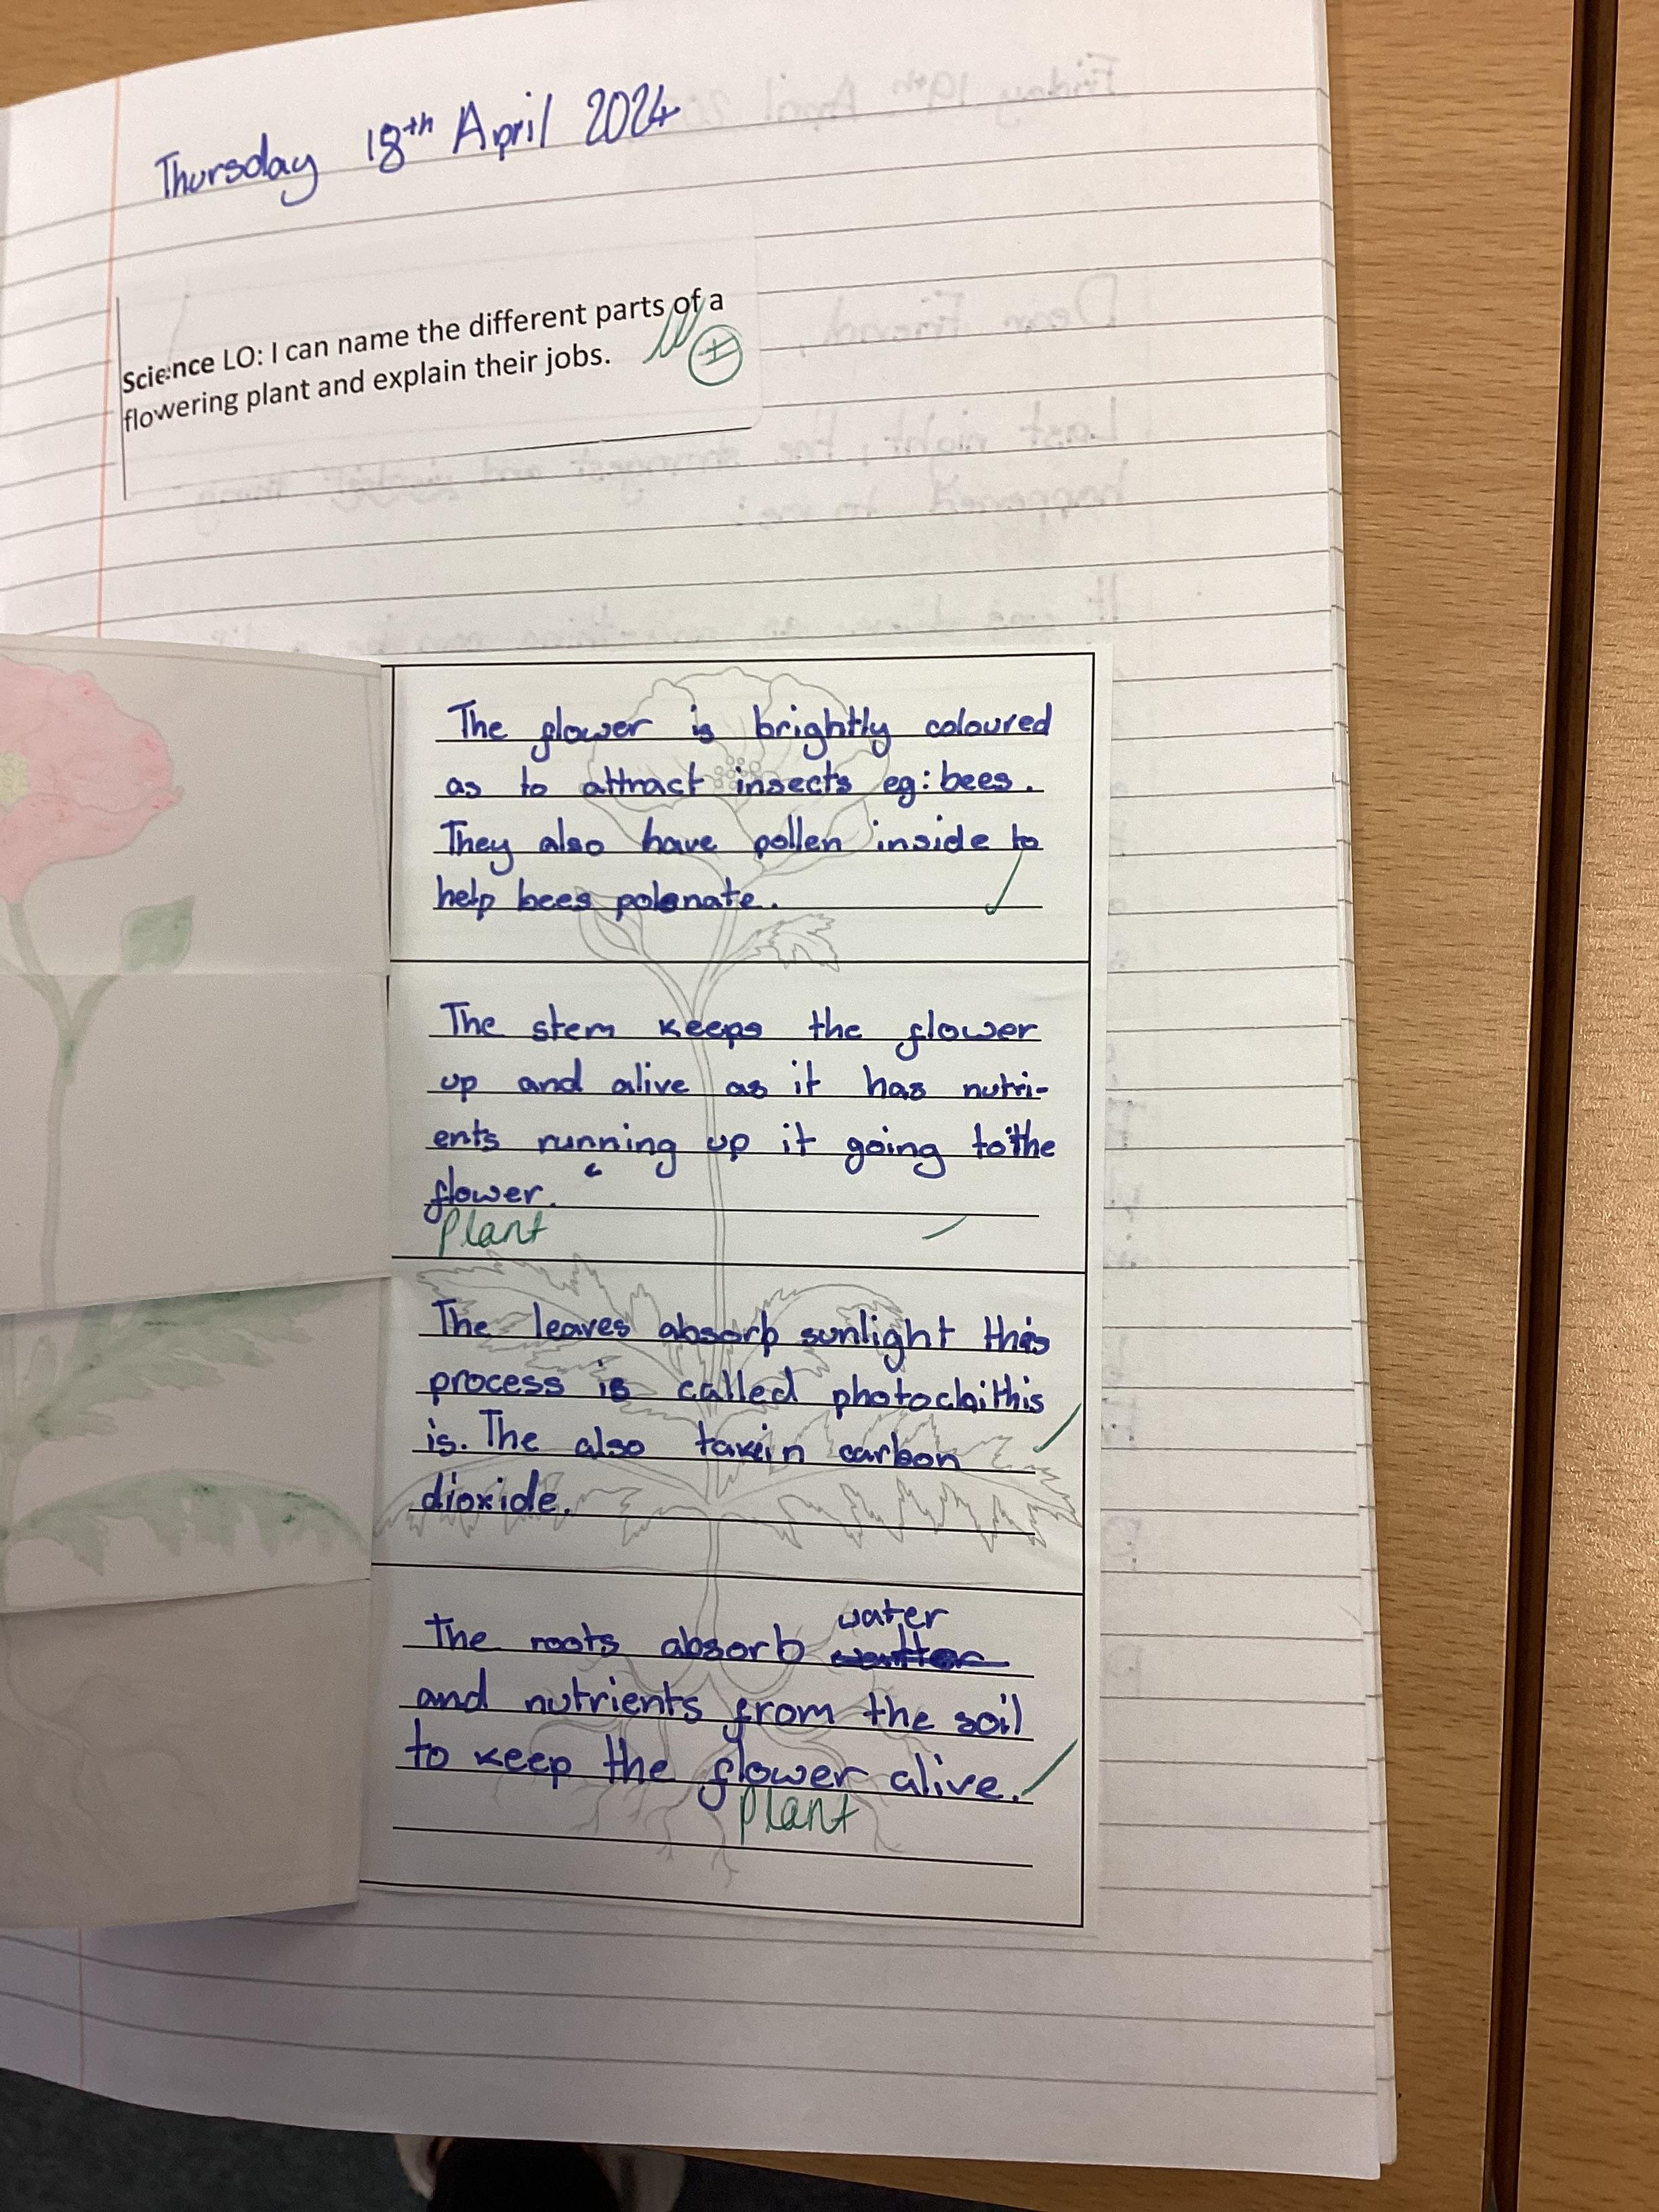 Thursday 18th April 2024
Science LO: I can name the different parts of a
flowering plant and explain their jobs.
The flower is brightly coloured
as to attract insects eg: bees.
They also have pollen inside to
help bees polenate.
The stem keeps the flower
up and alive as it has nutri-
ents running up it going to the
flower.
Plant
The leaves absorb sunlight this
process is called photoclaithis
is. The also takein carbon
dioxide.
water
The roots absorb
and nutrients from the soil
to keep the flower alive.
Plant